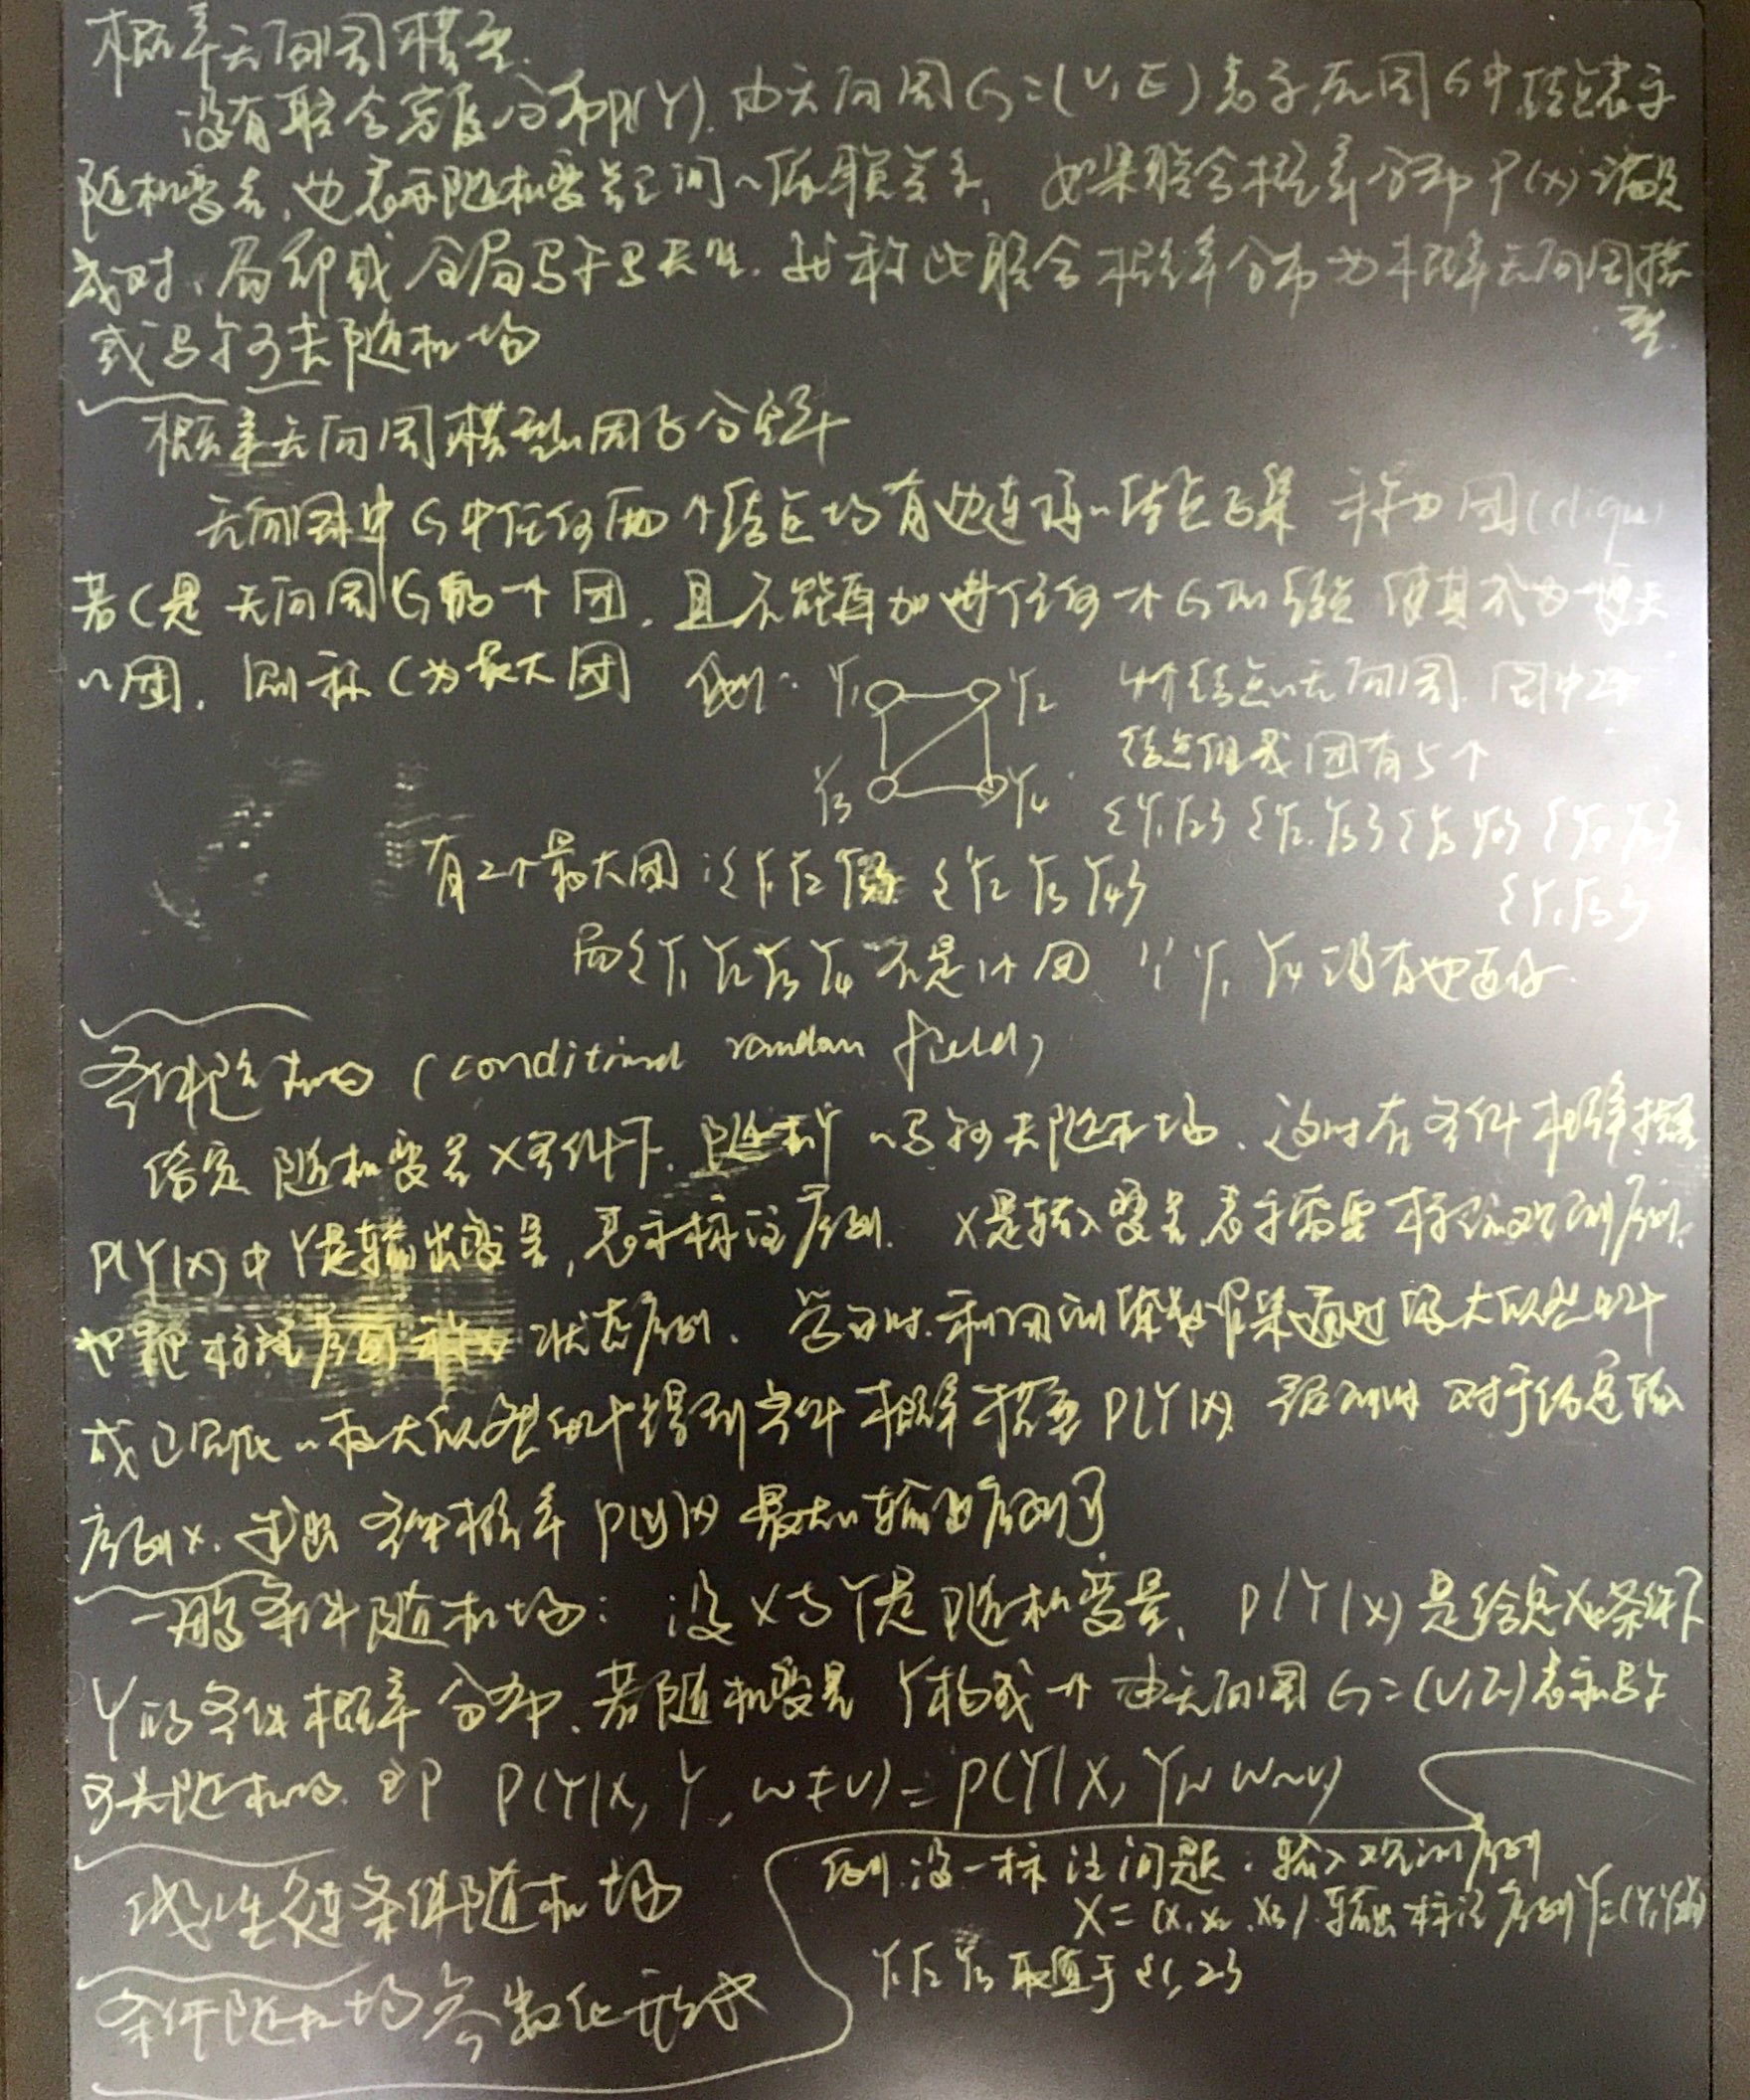 概率无向图模型.
设有联合概率分布P(Y). 由无向图G=(V,E)表示 在图G中, 结点表示
随机变量, 边表示随机变量之间的依赖关系, 如果联合概率分布P(Y)满足
成对、局部或全局马尔可夫性. 就称此联合概率分布为概率无向图模
型.
或马尔可夫随机场
概率无向图模型的因子分解
无向图中G中任何两个结点均有边连接的结点子集 称为团(clique)
若C是无向图G的一个团, 且不能再加进任何一个G的结点使其成为一更大
的团, 则称C为最大团 例: Y1 Y2 4个结点的无向图. 图中2个
结点组成团有5个
Y3 Y4
{Y1,Y2} {Y2,Y3} {Y3 Y4} {Y4 Y2}
有2个最大团:{Y1 Y2 Y3} {Y2 Y3 Y4} {Y1,Y3}
而{Y1 Y2 Y3 Y4 不是1个团 ∵ Y1 Y4 没有边连接.
条件随机场 (conditional random field)
给定随机变量X条件下. 随机Y的马尔可夫随机场. 这时在条件概率模型
P(Y|X)中Y是输出变量, 表示标注序列. X是输入变量, 表示需要标注观测序列.
也把标注序列称为状态序列. 学习时. 利用训练数据集通过极大似然估计
或正则化的极大似然估计得到条件概率模型P(Y|X) 预测时 对于给定输入
序列x. 求出条件概率P(y|x)最大的输出序列ŷ
一般条件随机场: 设X与Y是随机变量, P(Y|X)是给定X的条件下
Y的条件概率分布. 若随机变量Y构成一个由无向图G=(V,E)表示马尔
可夫随机场. 即 P(Y|X, Y, w≠v) = P(Y|X, Yw w~v)
例: 设一标注问题: 输入观测序列
线性链条件随机场
X=(x1 x2 x3). 输出标注序列Y=(Y1,Y2,Y3)
Y1 Y2 Y3 取值于{1,2}
条件随机场参数化形式